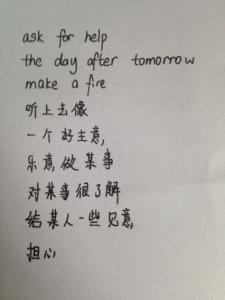 ask for help
the day after tomorrow
make a fire
听上去像
一个好主意,
乐意,做某事
对某事很了解
给某人一些见意,
担心